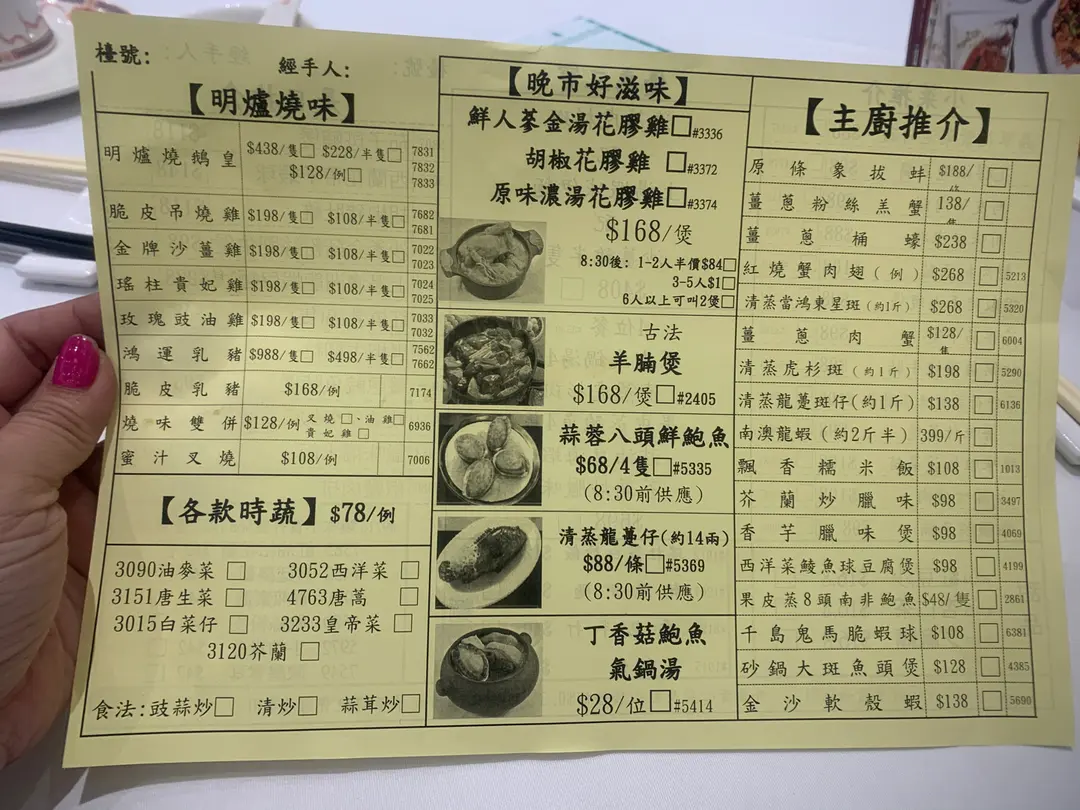 檯號:
經手人:
【明爐燒味】
明爐燒鵝皇 $438/隻□ $228/半隻□ 7831
$128/例□ 7832
7833
脆皮吊燒雞 $198/隻□ $108/半隻□ 7682
7681
金牌沙薑雞 $198/隻□ $108/半隻□ 7022
7023
瑤柱貴妃雞 $198/隻□ $108/半隻□ 7024
7025
玫瑰豉油雞 $198/隻□ $108/半隻□ 7033
7032
鴻運乳豬 $988/隻□ $498/半隻□ 7562
7662
脆皮乳豬 $168/例 7174
燒味雙併 $128/例 叉燒□、油雞□ 6936
貴妃雞□
蜜汁叉燒 $108/例 7006
【各款時蔬】$78/例
3090油麥菜 □ 3052西洋菜 □
3151唐生菜 □ 4763唐萵 □
3015白菜仔 □ 3233皇帝菜 □
3120芥蘭 □
食法:豉蒜炒□ 清炒□ 蒜茸炒□
【晚市好滋味】
鮮人蔘金湯花膠雞□#3336
胡椒花膠雞 □#3372
原味濃湯花膠雞□#3374
$168/煲
8:30後: 1-2人半價$84□
3-5人$1□
6人以上可叫2煲□
古法
羊腩煲
$168/煲□#2405
蒜蓉八頭鮮鮑魚
$68/4隻□#5335
(8:30前供應)
清蒸龍躉仔(約14兩)
$88/條□#5369
(8:30前供應)
丁香菇鮑魚
氣鍋湯
$28/位□#5414
【主廚推介】
原條象拔蚌 $188/ □
薑蔥粉絲羔蟹 138/ □
薑蔥桶蠔 $238 □
紅燒蟹肉翅(例) $268 □ 5213
清蒸當鴻東星斑(約1斤) $268 □ 5320
薑蔥肉蟹 $128/隻 □ 6004
清蒸虎杉斑(約1斤) $198 □ 5290
清蒸龍躉斑仔(約1斤) $138 □ 6136
南澳龍蝦(約2斤半) 399/斤 □
飄香糯米飯 $108 □ 1013
芥蘭炒臘味 $98 □ 3497
香芋臘味煲 $98 □ 4069
西洋菜鯪魚球豆腐煲 $98 □ 4199
果皮蒸8頭南非鮑魚 $48/隻 □ 2861
千島鬼馬脆蝦球 $108 □ 6381
砂鍋大斑魚頭煲 $128 □ 4385
金沙軟殼蝦 $138 □ 5690